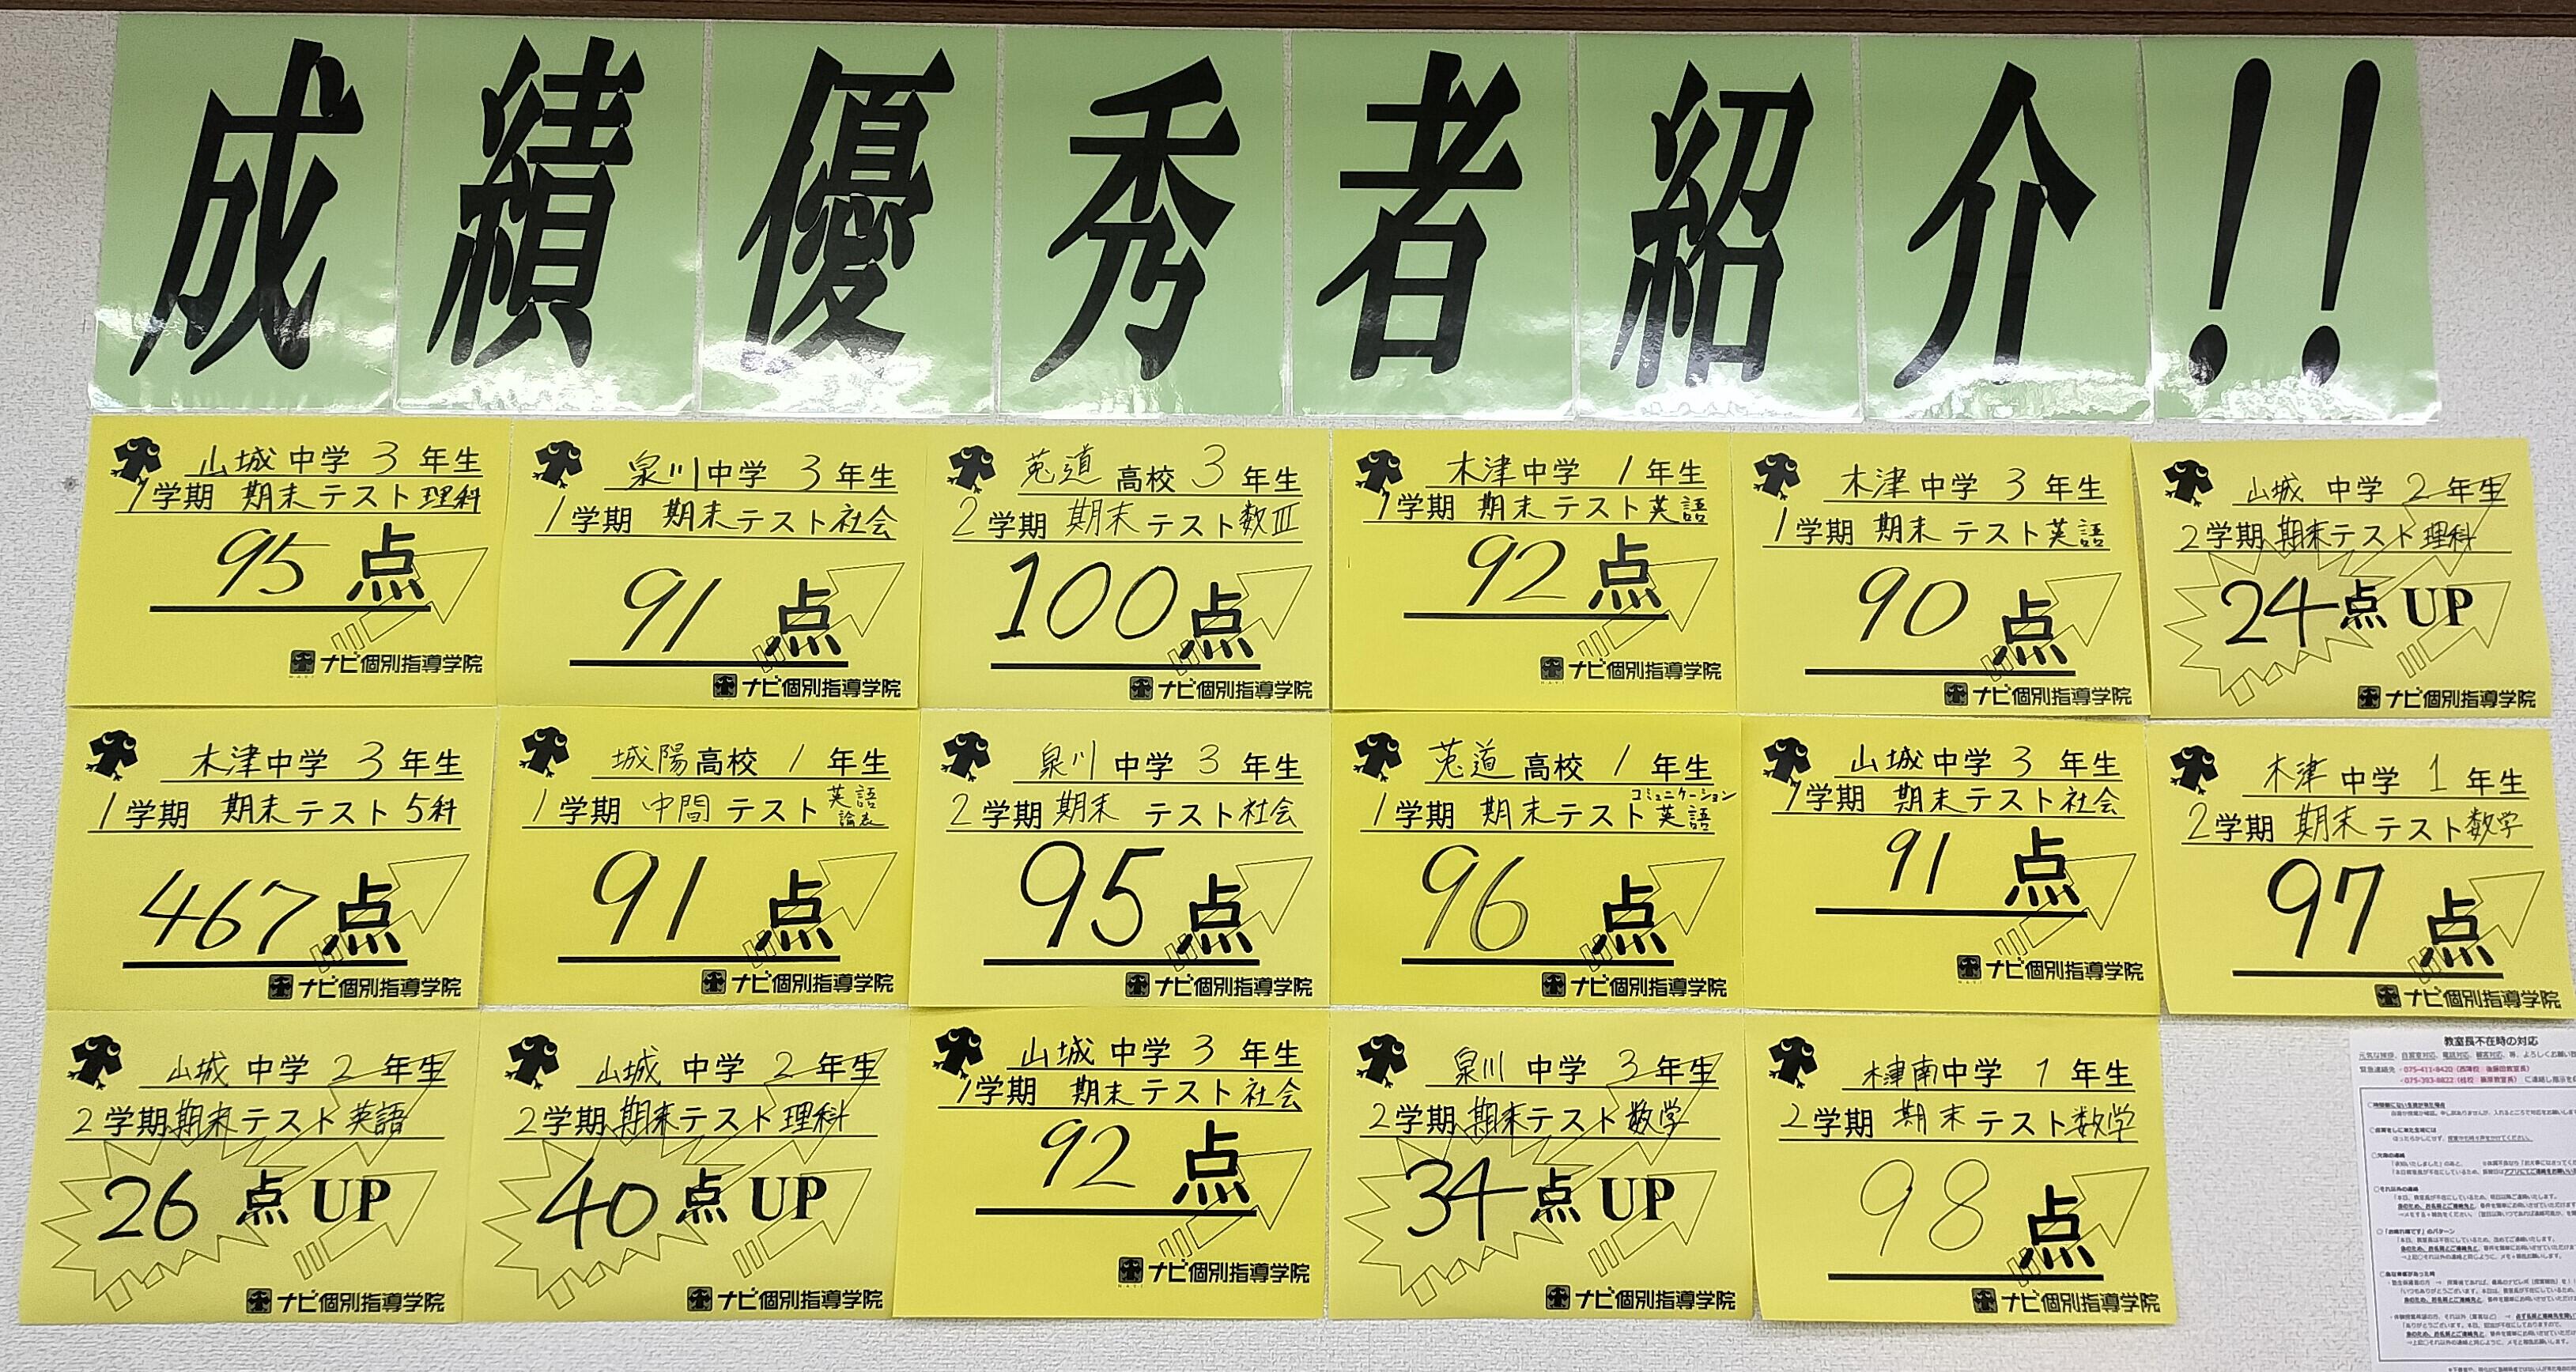 成績優秀者紹介!!
山城中学 3 年生
1学期 期末テスト理科
95点
ナビ個別指導学院
泉川中学 3 年生
1学期 期末テスト社会
91点
ナビ個別指導学院
莵道高校 3 年生
2学期 期末テスト数III
100点
ナビ個別指導学院
木津中学 1 年生
1学期 期末テスト英語
92点
ナビ個別指導学院
木津中学 3 年生
1学期 期末テスト英語
90点
ナビ個別指導学院
山城中学 2 年生
2学期 期末テスト理科
24点UP
ナビ個別指導学院
木津中学 3 年生
1学期 期末テスト5科
467点
ナビ個別指導学院
城陽高校 1 年生
1学期 中間テスト英語論表
91点
ナビ個別指導学院
泉川中学 3 年生
2学期 期末テスト社会
95点
ナビ個別指導学院
莵道高校 1 年生
コミュニケーション
1学期 期末テスト英語
96点
ナビ個別指導学院
山城中学 3 年生
1学期 期末テスト社会
91点
ナビ個別指導学院
木津中学 1 年生
2学期 期末テスト数学
97点
ナビ個別指導学院
山城中学 2 年生
2学期 期末テスト英語
26点UP
ナビ個別指導学院
山城中学 2 年生
2学期 期末テスト理科
40点UP
ナビ個別指導学院
山城中学 3 年生
1学期 期末テスト社会
92点
ナビ個別指導学院
泉川中学 3 年生
2学期 期末テスト数学
34点UP
ナビ個別指導学院
木津南中学 1 年生
2学期 期末テスト数学
98点
ナビ個別指導学院
教室長不在時の対応